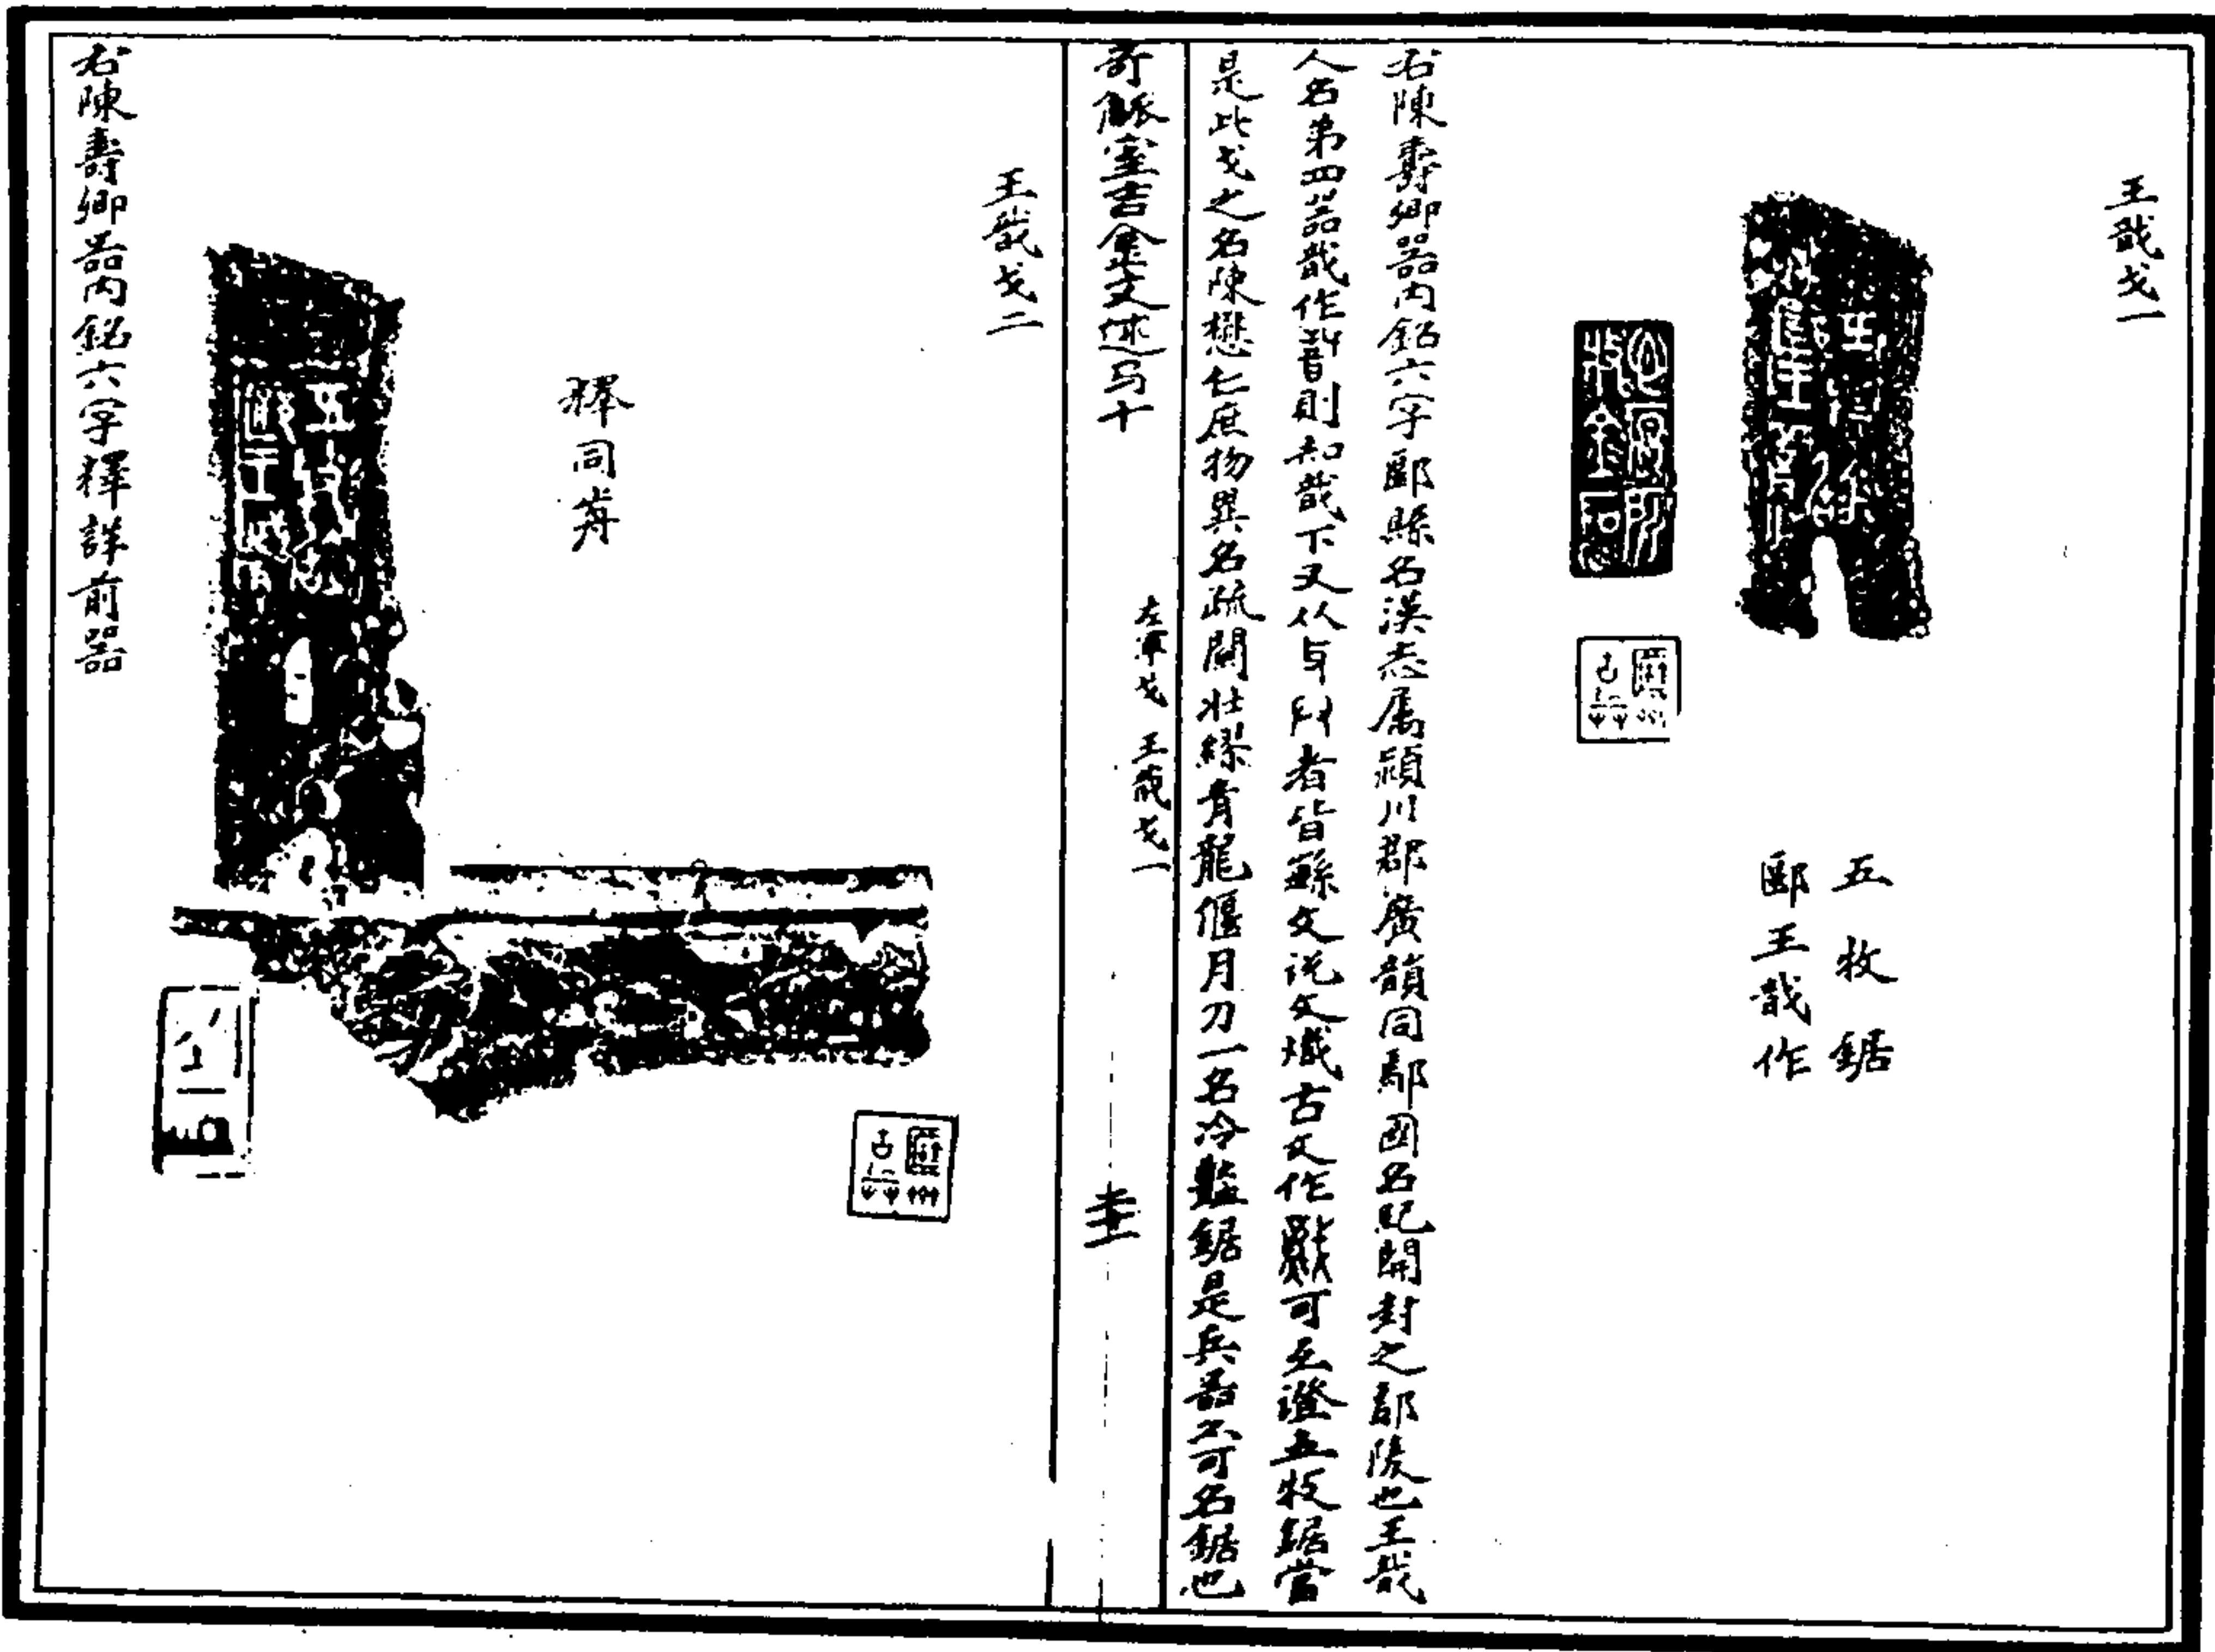 王哉戈一
五牧鋸
郾王哉作
右陳壽卿器内銘六字郾縣名漢志屬潁川郡廣韻同鄢國名見開封之鄢陵也王哉
人名第四器哉作則知哉下又从者皆籀文說文熾古文作可互證五牧鋸當
是此戈之名陳懋仁庶物異名疏關壯繆青龍偃月刀一名冷豔鋸是兵器亦可名鋸也
奇觚室吉金文述弓十
左軍戈 王哉戈一
王哉戈二
釋同前
右陳壽卿器内銘六字釋詳前器